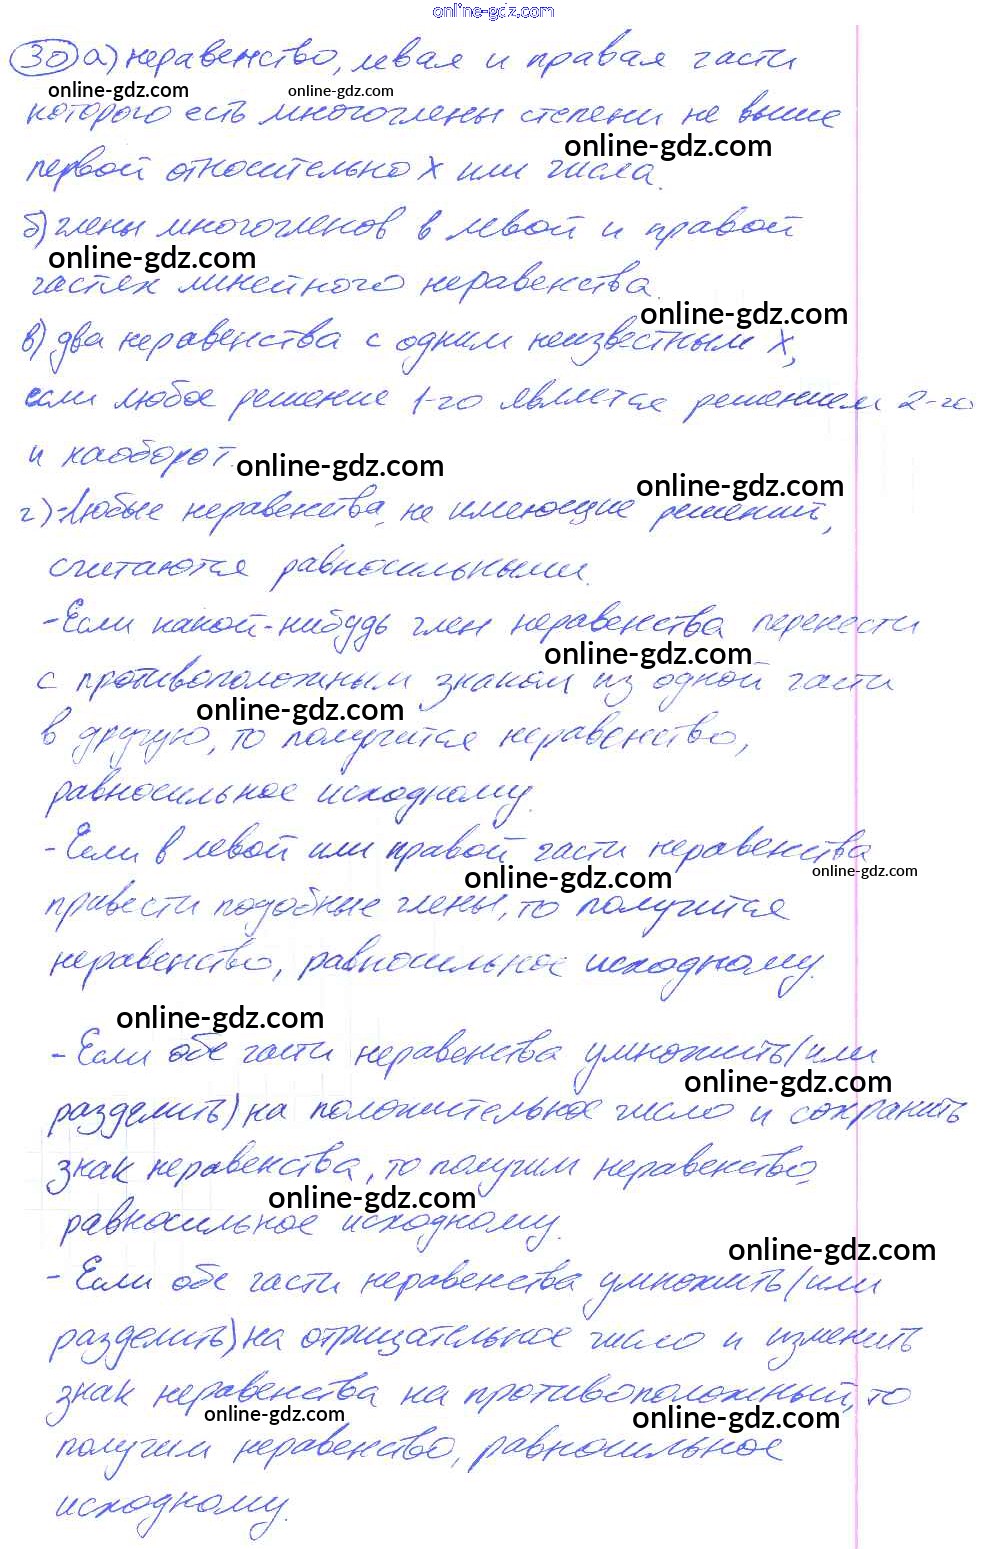 online-gdz.com
30 а) неравенство, левая и правая части
online-gdz.com online-gdz.com
которого есть многочлены степени не выше
online-gdz.com
первой относительно х или числа.
б) члены многочленов в левой и правой
online-gdz.com
частях линейного неравенства.
online-gdz.com
в) два неравенства с одним неизвестным х,
если любое решение 1-го является решением 2-го
и наоборот.
online-gdz.com
online-gdz.com
г) -Любые неравенства, не имеющие решений,
считаются равносильными.
-Если какой-нибудь член неравенства перенести
online-gdz.com
с противоположным знаком из одной части
online-gdz.com
в другую, то получится неравенство,
равносильное исходному.
-Если в левой или правой части неравенства
online-gdz.com
online-gdz.com
привести подобные члены, то получится
неравенство, равносильное исходному.
online-gdz.com
-Если обе части неравенства умножить (или
online-gdz.com
разделить) на положительное число и сохранить
знак неравенства, то получим неравенство,
online-gdz.com
равносильное исходному.
online-gdz.com
- Если обе части неравенства умножить (или
разделить) на отрицательное число и изменить
знак неравенства на противоположный, то
online-gdz.com
online-gdz.com
получим неравенство, равносильное
исходному.